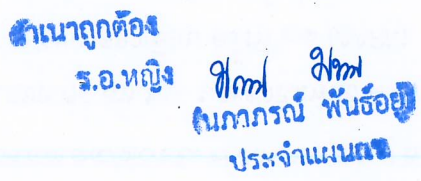 สำเนาถูกต้อง
ร.อ.หญิง
(นภาภรณ์ พันธ์อยู่)
ประจำแผนก